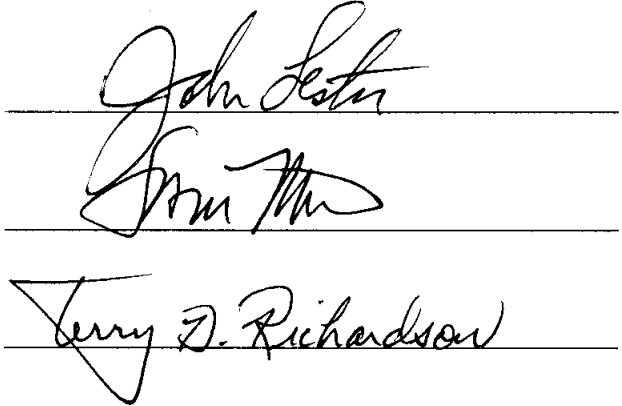 John Lester
Terry D. Richardson